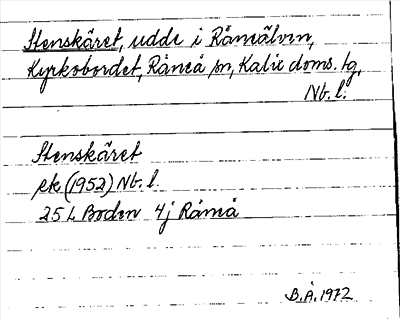 Stenskäret, udde i Råneälven,
Kyrkobordet, Råneå sn, Kalix doms. tg,
Nb. l.
Stenskäret
ek (1952) Nb. l.
25 L Boden 4j Råneå
B.Å. 1972